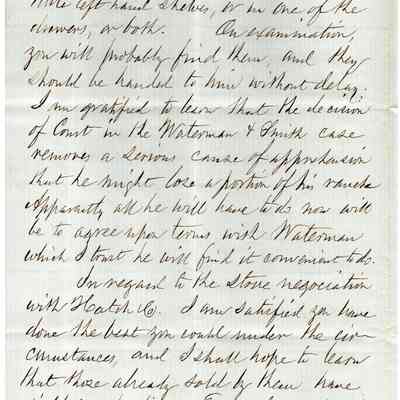 left hand shelves, or in one of the
drawers, or both. On examination,
you will probably find them, and they
should be handed to him without delay.
I am gratified to learn that the decision
of Court in the Waterman & Smith case
removes a serious cause of apprehension
that he might lose a portion of his ranch
Apparently all he will have to do now will
be to agree upon terms with Waterman
which I trust he will find it convenient to do.
In regard to the Stone negociation
with Hatch & Co. I am satisfied you have
done the best you could under the cir-
cumstances, and I shall hope to learn
that those already sold by them have